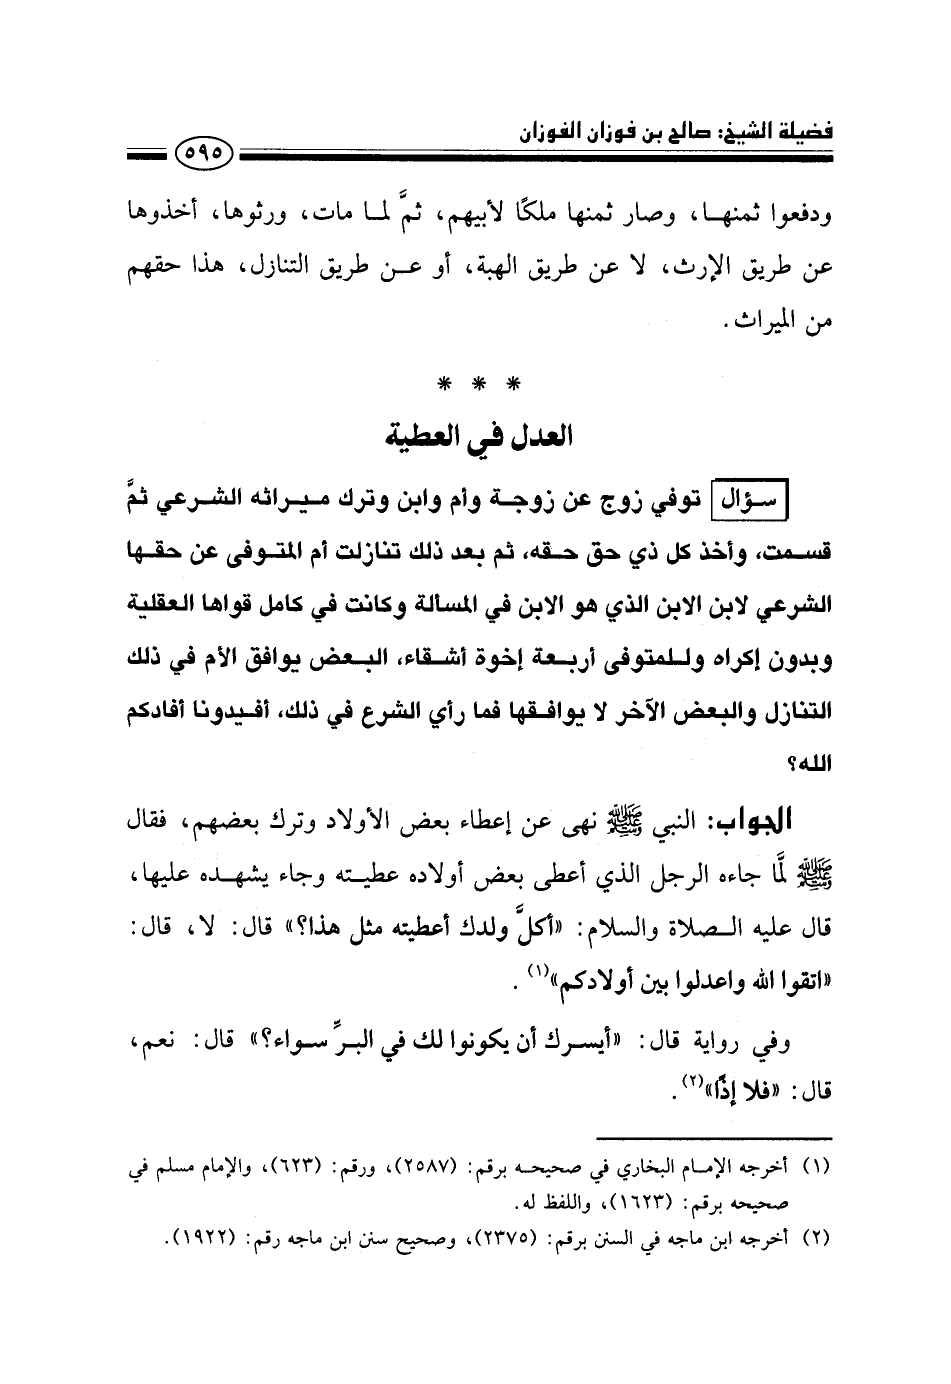 فضيلة الشيخ: صالح بن فوزان الفوزان
٥٩٥
ودفعوا ثمنها، وصار ثمنها ملكًا لأبيهم، ثمَّ لما مات، ورثوها، أخذوها
عن طريق الإرث، لا عن طريق الهبة، أو عن طريق التنازل، هذا حقهم
من الميراث.
* * *
العدل في العطية
سؤال توفي زوج عن زوجة وأم وابن وترك ميراثه الشرعي ثمَّ
قسمت، وأخذ كل ذي حق حقه، ثم بعد ذلك تنازلت أم المتوفى عن حقها
الشرعي لابن الابن الذي هو الابن في المسألة وكانت في كامل قواها العقلية
وبدون إكراه وللمتوفى أربعة إخوة أشقاء، البعض يوافق الأم في ذلك
التنازل والبعض الآخر لا يوافقها فما رأي الشرع في ذلك، أفيدونا أفادكم
الله؟
الجواب: النبي ﷺ نهى عن إعطاء بعض الأولاد وترك بعضهم، فقال
ﷺ لمَّا جاءه الرجل الذي أعطى بعض أولاده عطيته وجاء يشهده عليها،
قال عليه الصلاة والسلام: «أكلَّ ولدك أعطيته مثل هذا؟» قال: لا، قال:
«اتقوا الله واعدلوا بين أولادكم»(١).
وفي رواية قال: «أيسرك أن يكونوا لك في البرِّ سواء؟» قال: نعم،
قال: «فلا إذًا»(٢).
(١) أخرجه الإمام البخاري في صحيحه برقم: (٢٥٨٧)، ورقم: (٦٢٣)، والإمام مسلم في
صحيحه برقم: (١٦٢٣)، واللفظ له.
(٢) أخرجه ابن ماجه في السنن برقم: (٢٣٧٥)، وصحيح سنن ابن ماجه رقم: (١٩٢٢).